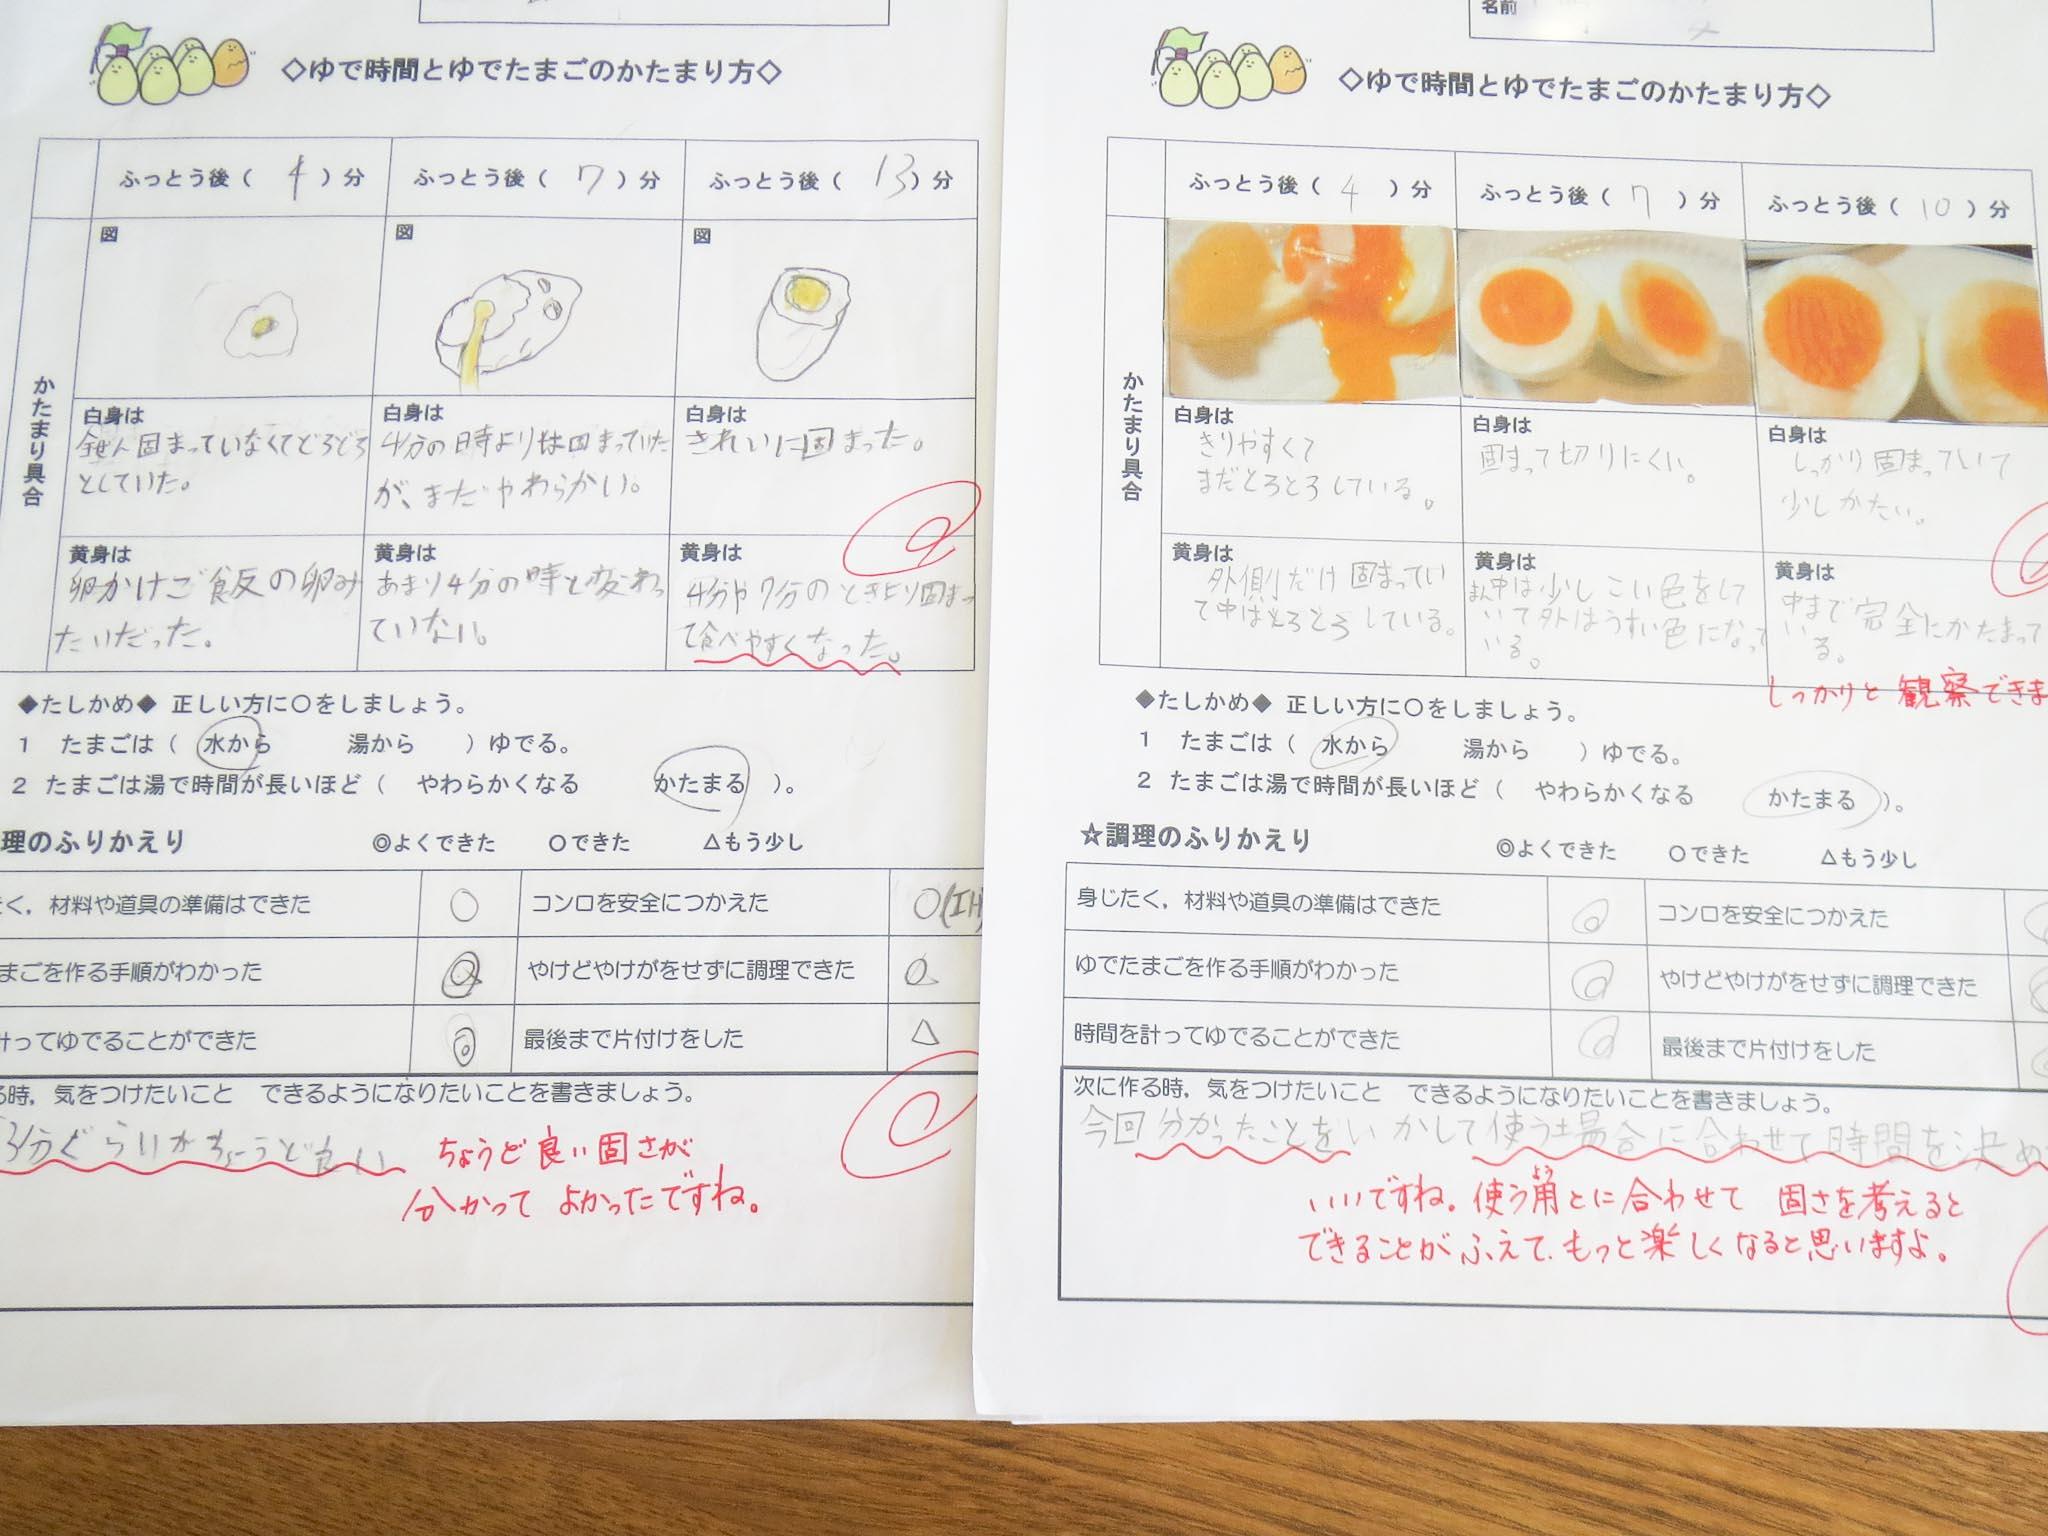 ◇ゆで時間とゆでたまごのかたまり方◇
ふっとう後（ 4 ）分
ふっとう後（ 7 ）分
ふっとう後（ 13 ）分
かたまり具合
図
図
図
白身は
全ぜん固まっていなくてどろどろ
としていた。
白身は
4分の時よりは固まっていた
が、まだやわらかい。
白身は
きれいに固まった。
黄身は
卵かけご飯の卵み
たいだった。
黄身は
あまり4分の時と変わっ
ていない。
黄身は
4分や7分のときより固まっ
て食べやすくなった。
◆たしかめ◆ 正しい方に〇をしましょう。
1 たまごは（ 水から 湯から ）ゆでる。
2 たまごは湯で時間が長いほど（ やわらかくなる かたまる ）。
理のふりかえり ◎よくできた 〇できた △もう少し
く，材料や道具の準備はできた ○ コンロを安全につかえた ○(IH)
まごを作る手順がわかった ◎ やけどやけがをせずに調理できた
計ってゆでることができた ◎ 最後まで片付けをした △
る時，気をつけたいこと できるようになりたいことを書きましょう。
3分ぐらいがちょうど良い
ちょうど良い固さが
分かって よかったですね。
名前
◇ゆで時間とゆでたまごのかたまり方◇
ふっとう後（ 4 ）分
ふっとう後（ 7 ）分
ふっとう後（ 10 ）分
かたまり具合
白身は
きりやすくて
まだとろとろしている。
白身は
固まって切りにくい。
白身は
しっかり固まっていて
少しかたい。
黄身は
外側だけ固まってい
て中はとろとろしている。
黄身は
まん中は少しこい色をして
いて外はうすい色になって
いる。
黄身は
中まで完全にかたまって
いる。
しっかりと観察できま
◆たしかめ◆ 正しい方に〇をしましょう。
1 たまごは（ 水から 湯から ）ゆでる。
2 たまごは湯で時間が長いほど（ やわらかくなる かたまる ）。
☆調理のふりかえり ◎よくできた 〇できた △もう少し
身じたく，材料や道具の準備はできた ◎ コンロを安全につかえた
ゆでたまごを作る手順がわかった ◎ やけどやけがをせずに調理できた
時間を計ってゆでることができた ◎ 最後まで片付けをした
次に作る時，気をつけたいこと できるようになりたいことを書きましょう。
今回分かったことをいかして使う場合に合わせて時間を決め
いいですね。使う用とに合わせて 固さを考えると
よう
できることがふえて、もっと楽しくなると思いますよ。